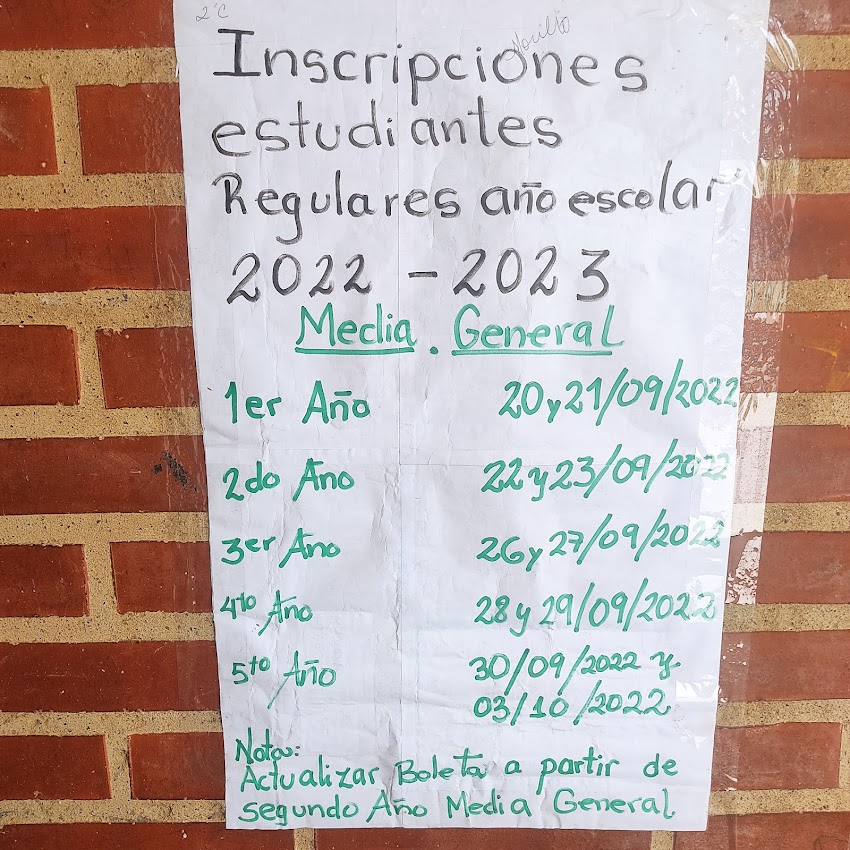 2°C
Inscripciones
estudiantes
Regulares año escolar
2022 - 2023
Media . General
1er Año 20 y 21/09/2022
2do Año 22 y 23/09/2022
3er Año 26 y 27/09/2022
4to Año 28 y 29/09/2022
5to Año 30/09/2022 y
03/10/2022
Nota:
Actualizar Boleta a partir de
segundo Año Media General